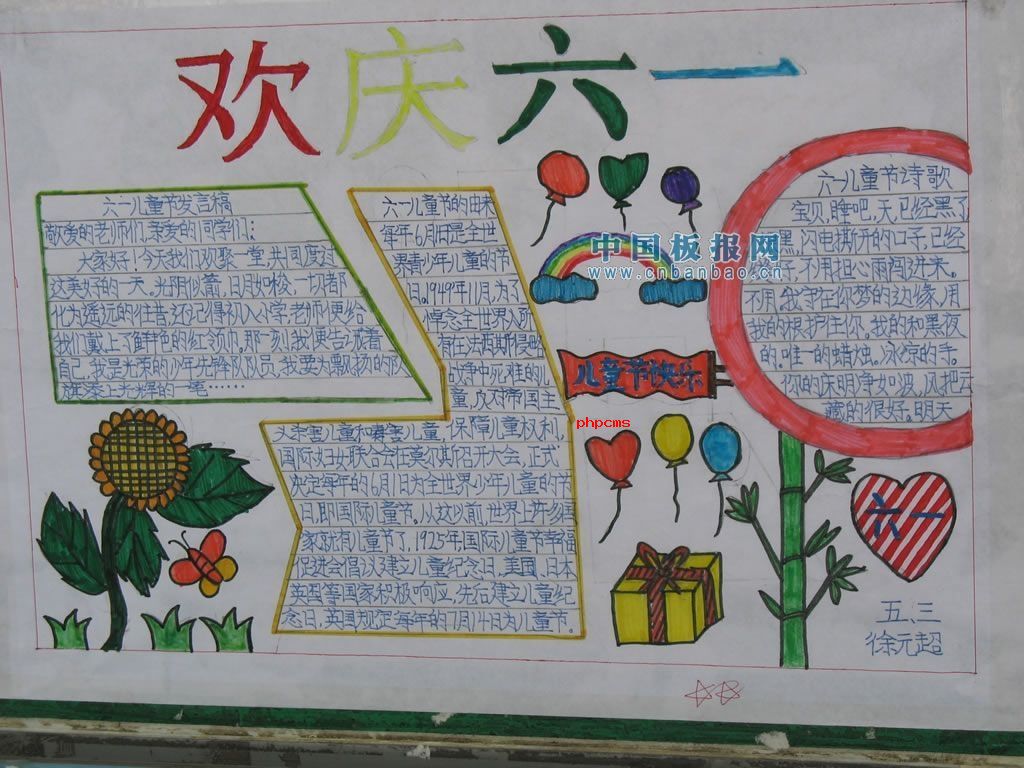 欢庆六一
六一儿童节发言稿
敬爱的老师们,亲爱的同学们:
大家好!今天我们欢聚一堂,共同度过
这美好的一天。光阴似箭,日月如梭,一切都
化为遥远的往昔,还记得初入小学,老师便给
我们戴上了鲜艳的红领巾。那一刻我便告诫着
自己,我是光荣的少年先锋队队员,我要为飘扬的队
旗添上光辉的一笔……
六一儿童节的由来
每年6月1日是全世
界青少年儿童的节
日。1949年11月,为了
悼念全世界人所
有在法西斯侵略
战争中死难的儿
童,反对帝国主
义杀害儿童和毒害儿童,保障儿童权利,
国际妇女联合会在莫尔斯召开大会,正式
决定每年的6月1日为全世界少年儿童的节
日,即国际儿童节。从这以前,世界上许多国
家就有儿童节了,1925年,国际儿童节幸福
促进会倡议建立儿童纪念日,美国、日本
英国等国家积极响应,先后建立儿童纪
念日,英国规定每年的7月14日为儿童节。
中国板报网
www.cnbanbao.cn
儿童节快乐
phpcms
六一儿童节诗歌
宝贝,睡吧,天,已经黑了
黑,闪电撕开的口子,已经
子,不用担心雨闯进来。
不用。我守在你梦的边缘,用
我的根护住你。我的和黑夜
的,唯一的蜡烛。冰凉的手。
你的床明净如波,风把云
藏的很好。明天
六一
五、三
徐元超